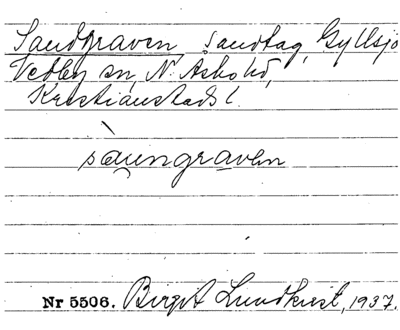 Sandgraven, sandtag, Gyllsjö
Vedby sn, N. Åsbo hd,
Kristianstads l.
sàungraven
Nr 5506. Birgit Lundkvist, 1937.